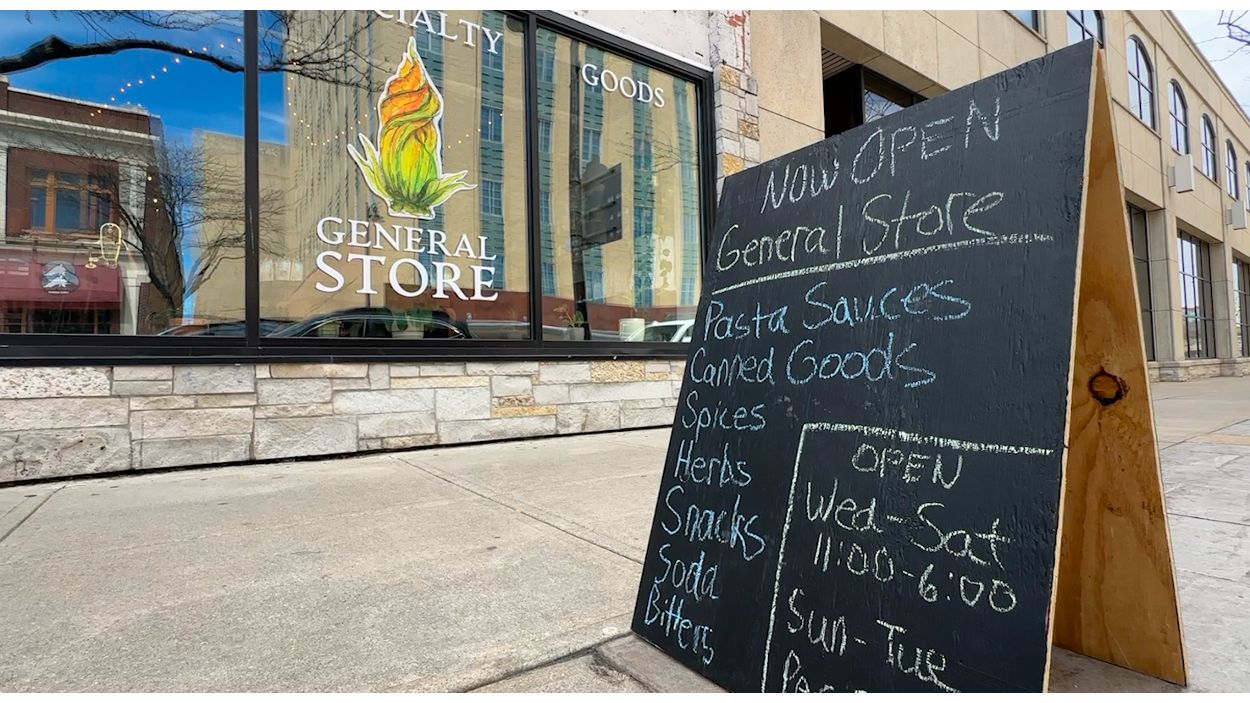 SPECIALTY
GOODS
GENERAL
STORE
Now OPEN
General Store
Pasta Sauces
Canned Goods
Spices
Herbs
Snacks
Soda
Bitters
OPEN
Wed-Sat
11:00-6:00
Sun-Tue